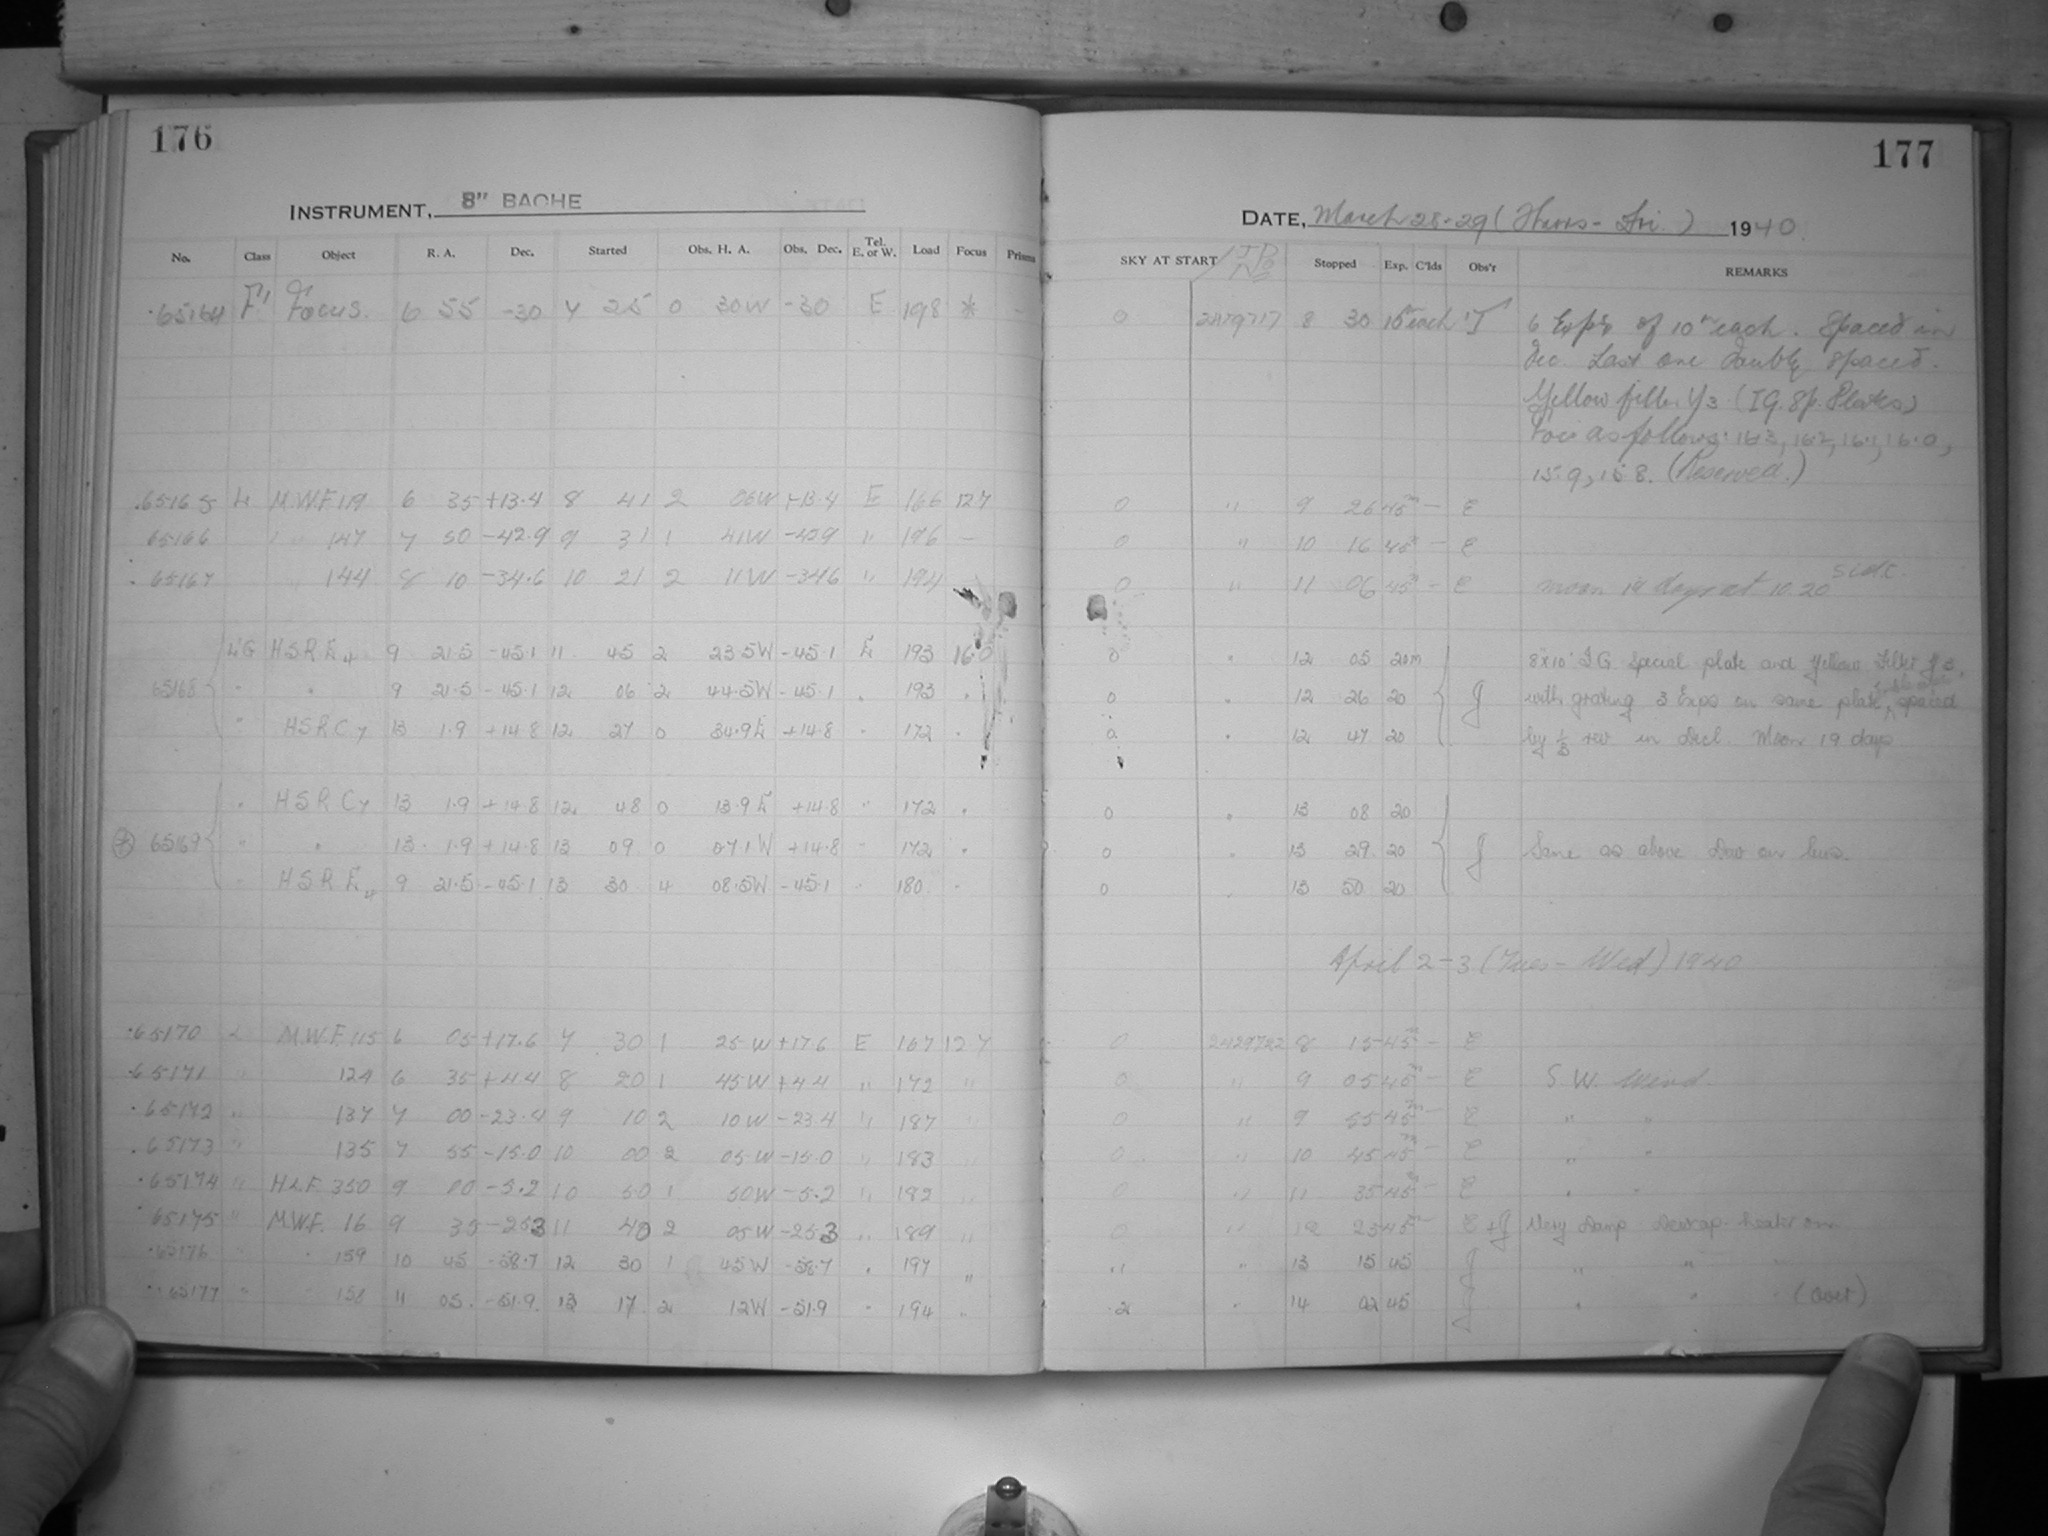 176
INSTRUMENT, 8" BACHE
No. Class Object R. A. Dec. Started Obs. H. A. Obs. Dec. Tel. E. or W. Load Focus Prisms
65164 F' Focus. 6 55 -30 7 25 0 30W -30 E 198 * -
65165 L M.W.F. 119 6 35 +13.4 8 41 2 06W +13.4 E 166 127
65166 " " 147 7 50 -42.9 9 31 1 41W -42.9 " 196 -
65167 " 144 8 10 -34.6 10 21 2 11W -34.6 " 194
L'G HSR E4 9 21.5 -45.1 11 45 2 23.5W -45.1 E 193 16.0
65168 " " 9 21.5 -45.1 12 06 2 44.5W -45.1 " 193 "
" HSR C7 13 1.9 +14.8 12 27 0 34.9E +14.8 " 172 "
" HSR C7 13 1.9 +14.8 12 48 0 13.9E +14.8 " 172 "
65169 " " 13 1.9 +14.8 13 09 0 07.1W +14.8 " 172 "
" HSR E4 9 21.5 -45.1 13 30 4 08.5W -45.1 " 180 "
65170 L M.W.F. 115 6 05 +17.6 7 30 1 25W +17.6 E 167 127
65171 " 124 6 35 +4.4 8 20 1 45W +4.4 " 172 "
65172 " 137 7 00 -23.4 9 10 2 10W -23.4 " 187 "
65173 " 135 7 55 -15.0 10 00 2 05W -15.0 " 183 "
65174 " H.L.F. 350 9 00 -5.2 10 50 1 50W -5.2 " 182 "
65175 " M.W.F. 16 9 35 -25.3 11 40 2 05W -25.3 " 189 "
65176 " " 159 10 45 -58.7 12 30 1 45W -58.7 " 197 "
65177 " " 158 11 05 -51.9 13 17 2 12W -51.9 " 194 "
177
DATE, March 28-29 (Thurs - Fri.) 1940.
SKY AT START Stopped Exp. C'lds Obs'r REMARKS
0 2429717 8 30 10m each T 6 Exps of 10m each. Spaced in
Dec. Last one doubly spaced.
Yellow filter Y3 (IG. Sp. Plates)
Foci as follows: 16.3, 16.2, 16.1, 16.0,
15.9, 15.8. (Reserved.)
0 " 9 26 45m - E
0 " 10 16 45m - E
0 " 11 06 45m - E moon 19 days at 10.20
0 " 12 05 20m 8x10 IG Special plate and Yellow Filter Y3.
0 " 12 26 20 J with grating 3 Exps on same plate, spaced
0 " 12 47 20 by 1/3 rev in Decl. Moon 19 days
0 " 13 08 20
0 " 13 29 20 J Same as above Dew on lens.
0 13 50 20
April 2-3 (Tues - Wed) 1940
0 2429722 8 15 45m - E
0 " 9 05 45m - E S.W. Wind.
0 " 9 55 45m - E " "
0 " 10 45 45m - E " "
0 " 11 35 45m - E " "
0 " 12 25 45m - E + J Very Damp Dewcap heater on
" " 13 15 45 J " " "
2 " 14 02 45 J " " " (Over)